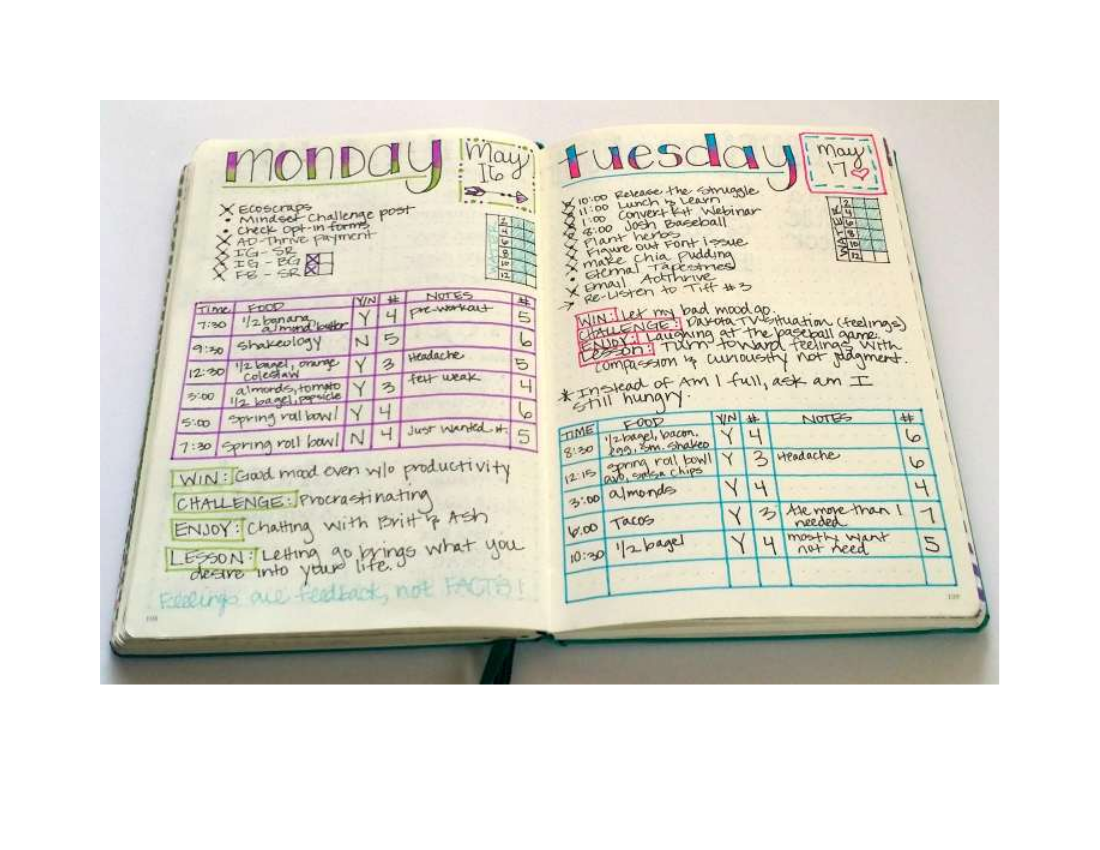 monday
May
16
X Ecoscraps
• Mindset Challenge post
• Check Opt-in forms
X AD-Thrive payment
X IG - SR
X IG - BG
X FB - SR
WATER
2
4
6
8
10
12
TIME FOOD Y/N # NOTES #
7:30 1/2 banana almond butter Y 4 pre-workout 5
9:30 shakeology N 5 6
12:30 1/2 bagel, orange coleslaw Y 3 Headache 5
3:00 almonds, tomato 1/2 bagel, popsicle Y 3 felt weak 4
5:00 spring roll bowl Y 4 6
7:30 spring roll bowl N 4 Just wanted it. 5
WIN: Good mood even w/o productivity
CHALLENGE: Procrastinating
ENJOY: Chatting with Britt & Ash
LESSON: Letting go brings what you
desire into your life.
Feelings are feedback, not FACTS!
tuesday
May
17
X 10:00 Release the Struggle
X 11:00 Lunch & Learn
X 1:00 ConvertKit Webinar
X 8:00 Josh Baseball
X Plant herbs
X Figure out Font issue
X make Chia pudding
• Eternal Tapestries
X Email AdThrive
→ Re-Listen to Tiff #3
WATER
2
4
6
8
10
12
WIN: Let my bad mood go.
CHALLENGE: Dakota TV situation (feelings)
ENJOY: Laughing at the baseball game.
Lesson: Turn toward feelings with
compassion & curiousity not judgment.
* Instead of Am I full, ask am I
still hungry.
TIME FOOD Y/N # NOTES #
8:30 1/2 bagel, bacon, egg, sm. shakeo Y 4 6
12:15 spring roll bowl avo, salsa chips Y 3 Headache 6
3:00 almonds Y 4 4
6:00 Tacos Y 3 Ate more than I needed 7
10:30 1/2 bagel Y 4 mostly want not need 5